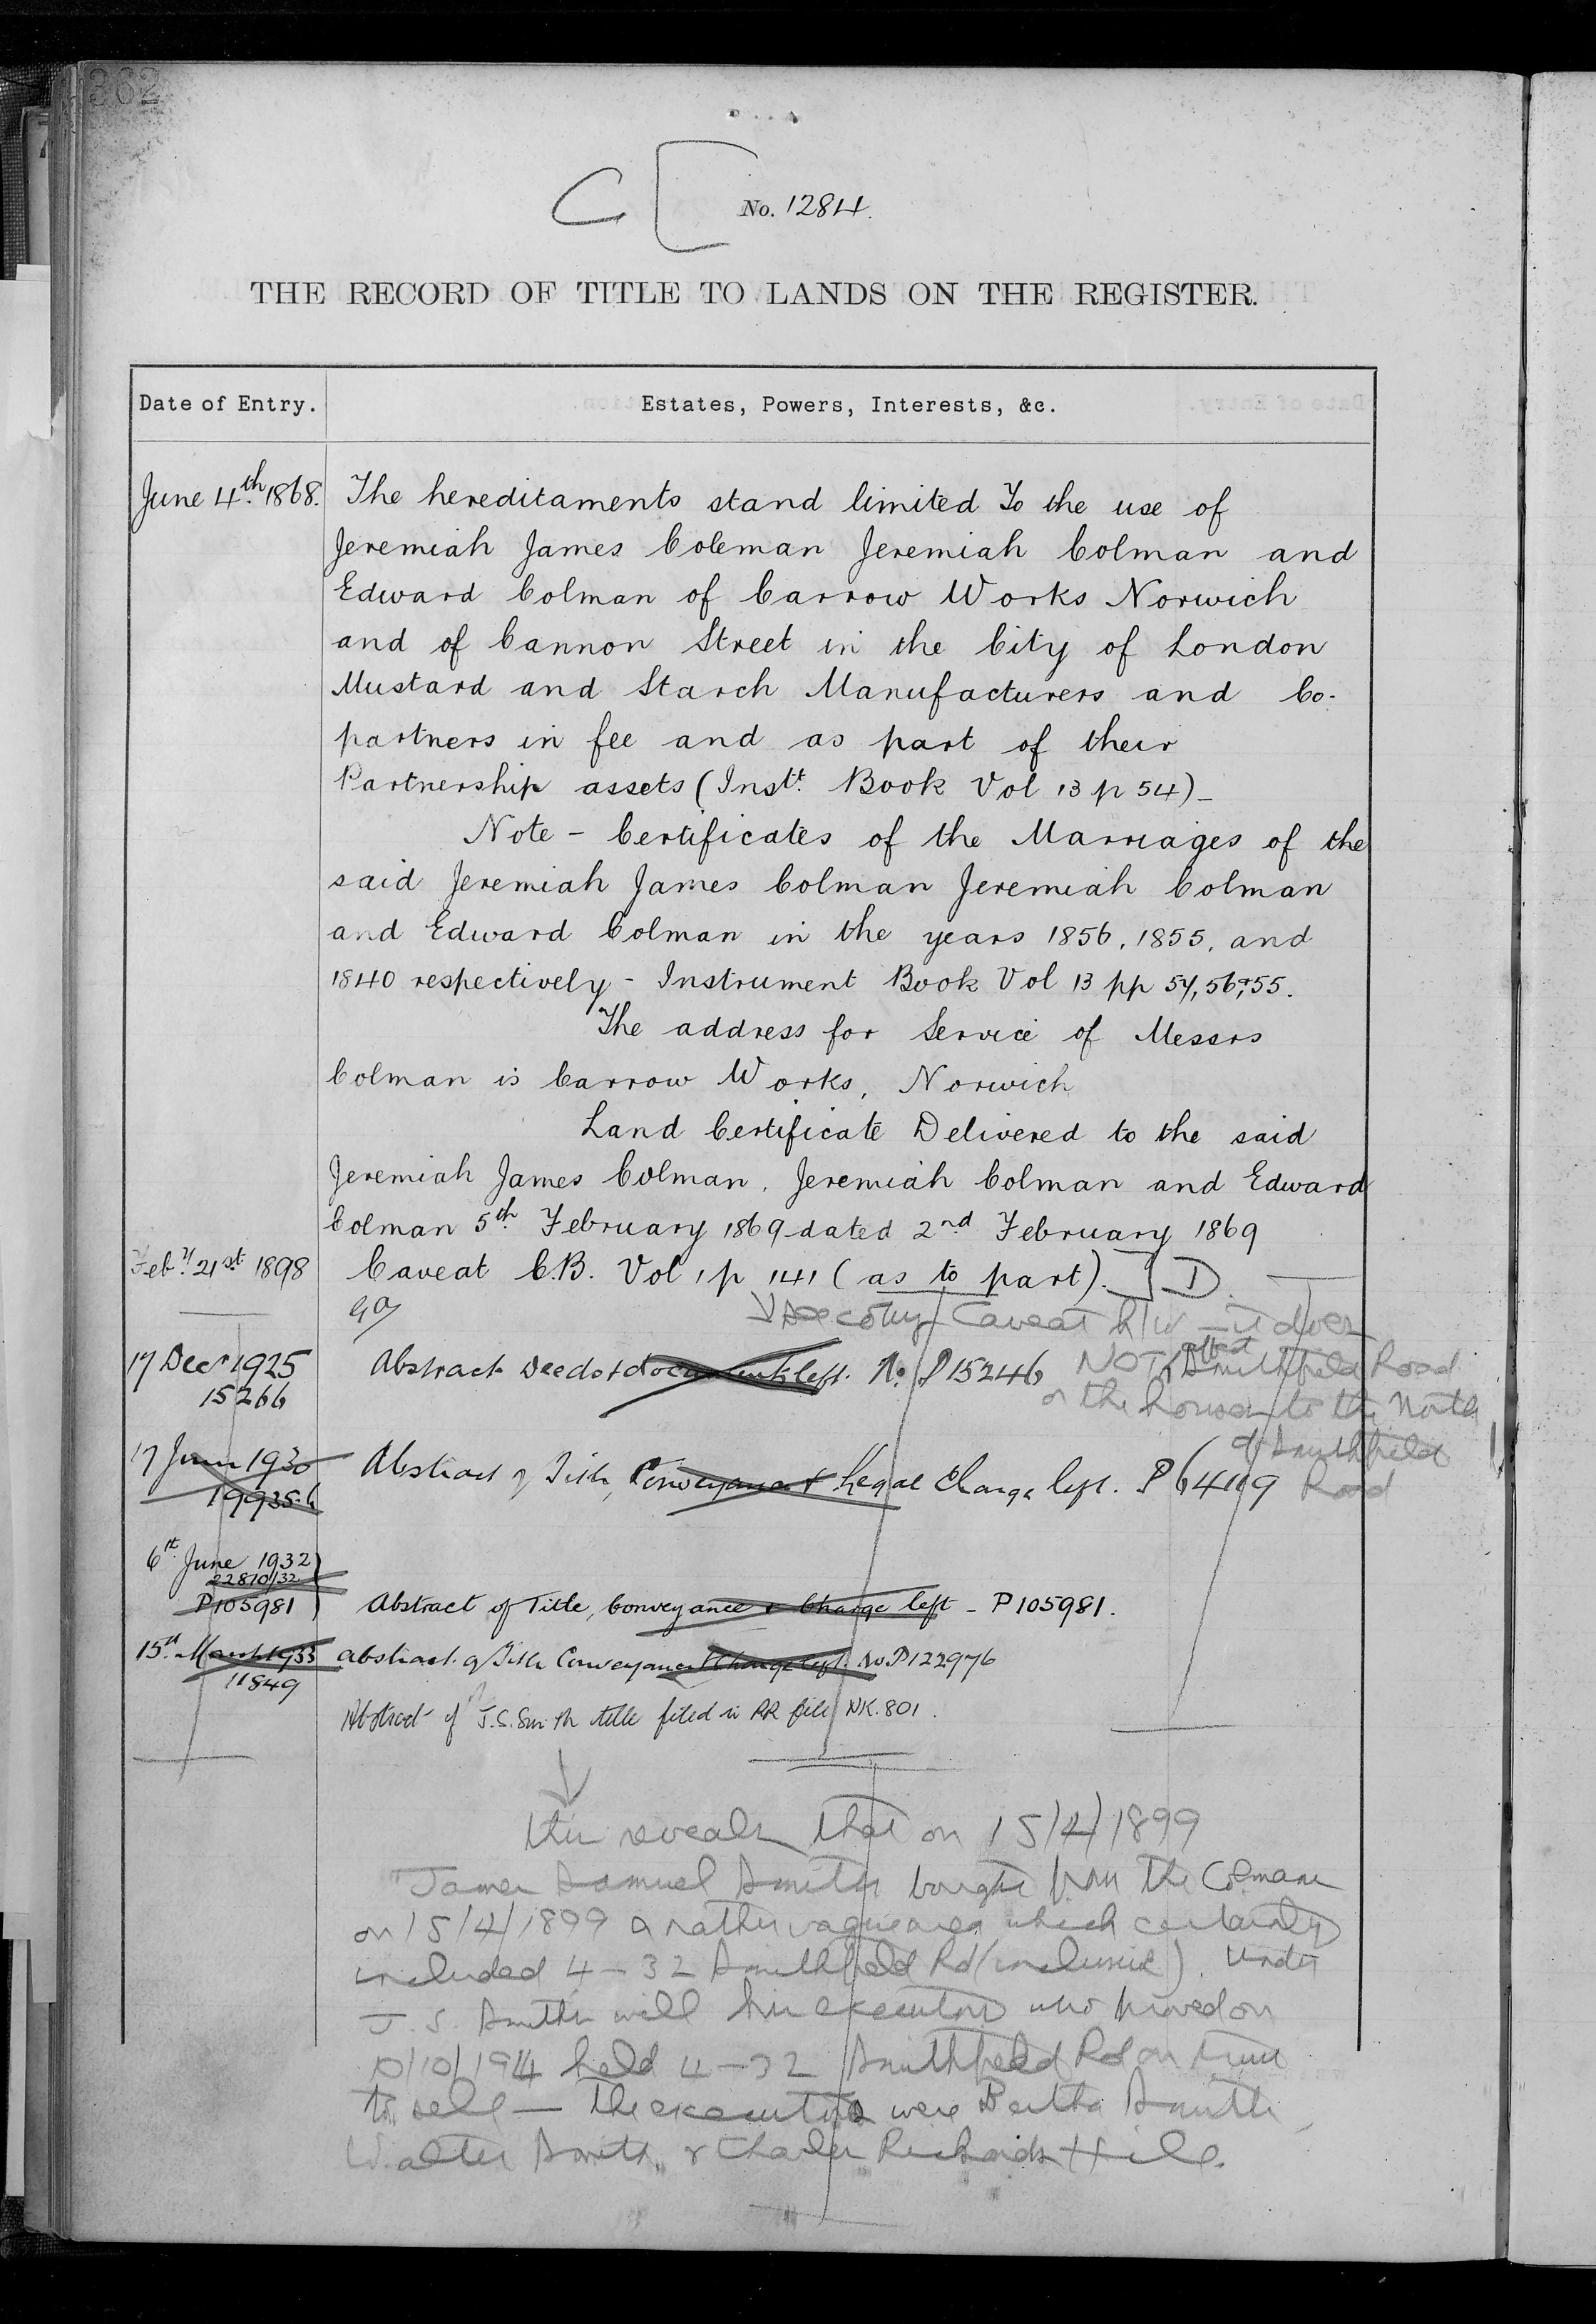 362
C [ No. 1284.
THE RECORD OF TITLE TO LANDS ON THE REGISTER.
Date of Entry. Estates, Powers, Interests, &c.
June 4th 1868. The hereditaments stand limited To the use of
Jeremiah James Coleman Jeremiah Colman and
Edward Colman of Carrow Works Norwich
and of Cannon Street in the City of London
Mustard and Starch Manufacturers and Co-
partners in fee and as part of their
Partnership assets (Instt. Book Vol 13 p 54) -
Note - Certificates of the Marriages of the
said Jeremiah James Colman Jeremiah Colman
and Edward Colman in the years 1856, 1855, and
1840 respectively - Instrument Book Vol 13 pp 57, 56, & 55.
The address for Service of Messrs
Colman is Carrow Works, Norwich
Land Certificate Delivered to the said
Jeremiah James Colman, Jeremiah Colman and Edward
Colman 5th February 1869 dated 2nd February 1869
Feby 21st 1898 Caveat C.B. Vol 1 p 141 (as to part). ] D
See copy Caveat h/w - it does
17 Decr 1925 Abstract Deeds & documents left. No. P 15246 NOT affect Smithfield Road
15266
or the houses to the North
of Smithfield
17 June 1930 Abstract of Title, Conveyance & Legal Charge left. P 64119 Road
19935.6
6th June 1932
22810/32
P105981 Abstract of Title, Conveyance & Charge left - P105981.
15th March 1933 Abstract of Title Conveyance & Charge left. No. P122976
11849
Abstract of J.S. Smith title filed in RR file NK.801.
this reveals that on 15/4/1899
James Samuel Smith bought from the Colmans
on 15/4/1899 a rather vague area which certainly
included 4-32 Smithfield Rd (inclusive). Under
J.S. Smith will his executors who proved on
10/10/1914 held 4-32 Smithfield Rd on trust
to sell - The executors were Bertha Smith,
Walter Smith & Charles Richards Hill.